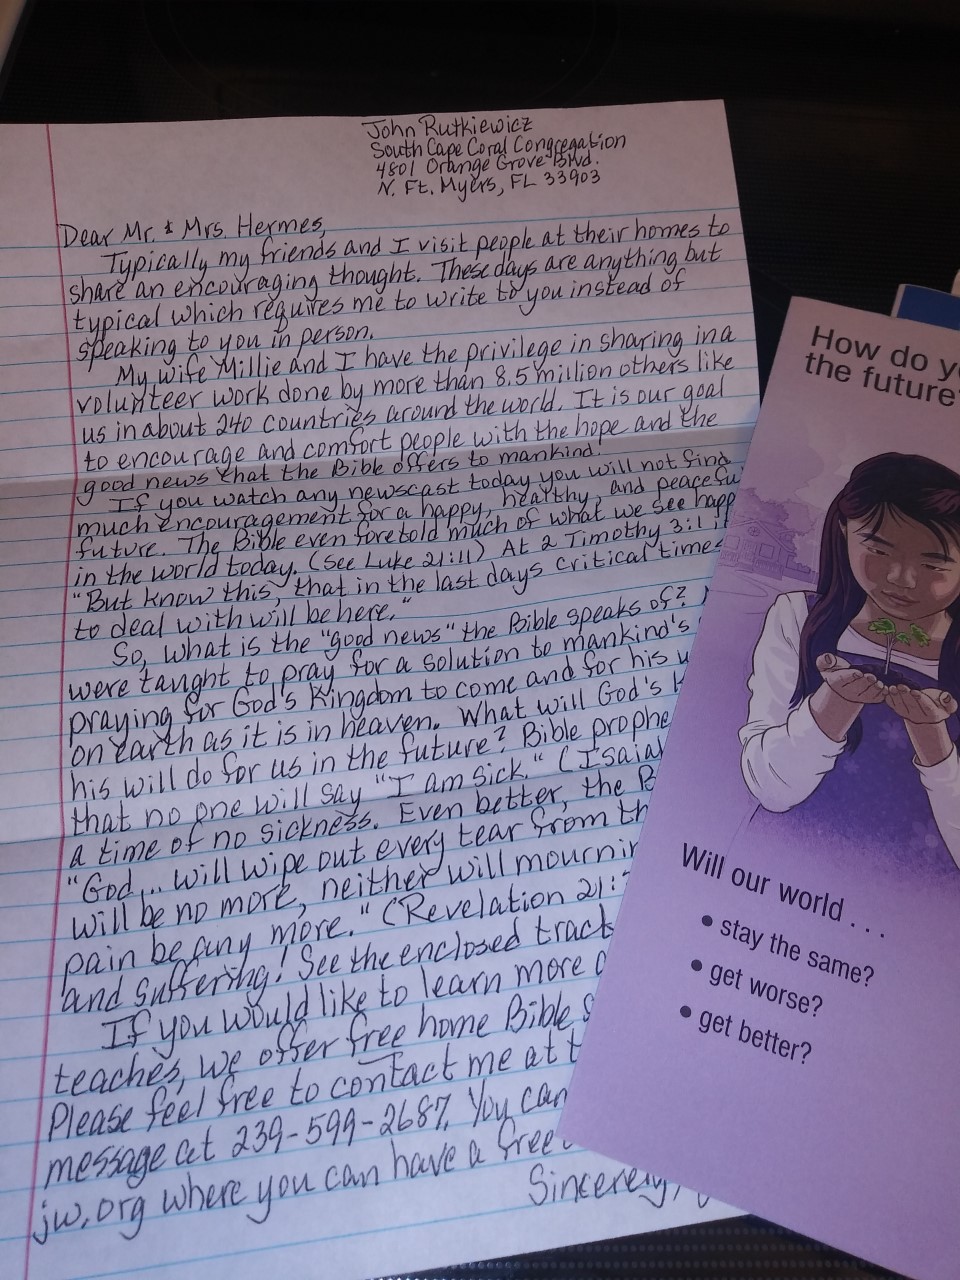 John Rutkiewicz
South Cape Coral Congregation
4801 Orange Grove Blvd.
N. Ft. Myers, FL 33903
Dear Mr. & Mrs. Hermes,
Typically my friends and I visit people at their homes to
share an encouraging thought. These days are anything but
typical which requires me to write to you instead of
speaking to you in person.
My wife Millie and I have the privilege in sharing in a
volunteer work done by more than 8.5 million others like
us in about 240 countries around the world. It is our goal
to encourage and comfort people with the hope and the
good news that the Bible offers to mankind.
If you watch any newscast today you will not find
much encouragement for a happy, healthy, and peacefu
future. The Bible even foretold much of what we see happ
in the world today. (See Luke 21:11) At 2 Timothy 3:1 it
"But know this, that in the last days critical times
to deal with will be here."
So, what is the "good news" the Bible speaks of?
were taught to pray for a solution to mankind's
praying for God's Kingdom to come and for his w
on earth as it is in heaven. What will God's k
his will do for us in the future? Bible prophe
that no one will say "I am sick." (Isaiah
a time of no sickness. Even better, the B
"God... will wipe out every tear from th
will be no more, neither will mournin
pain be any more." (Revelation 21:
and suffering! See the enclosed tract
If you would like to learn more
teaches, we offer free home Bible s
Please feel free to contact me at t
message at 239-599-2687. You can
jw.org where you can have a free
Sincerely,
How do yo
the future
Will our world . . .
• stay the same?
• get worse?
• get better?